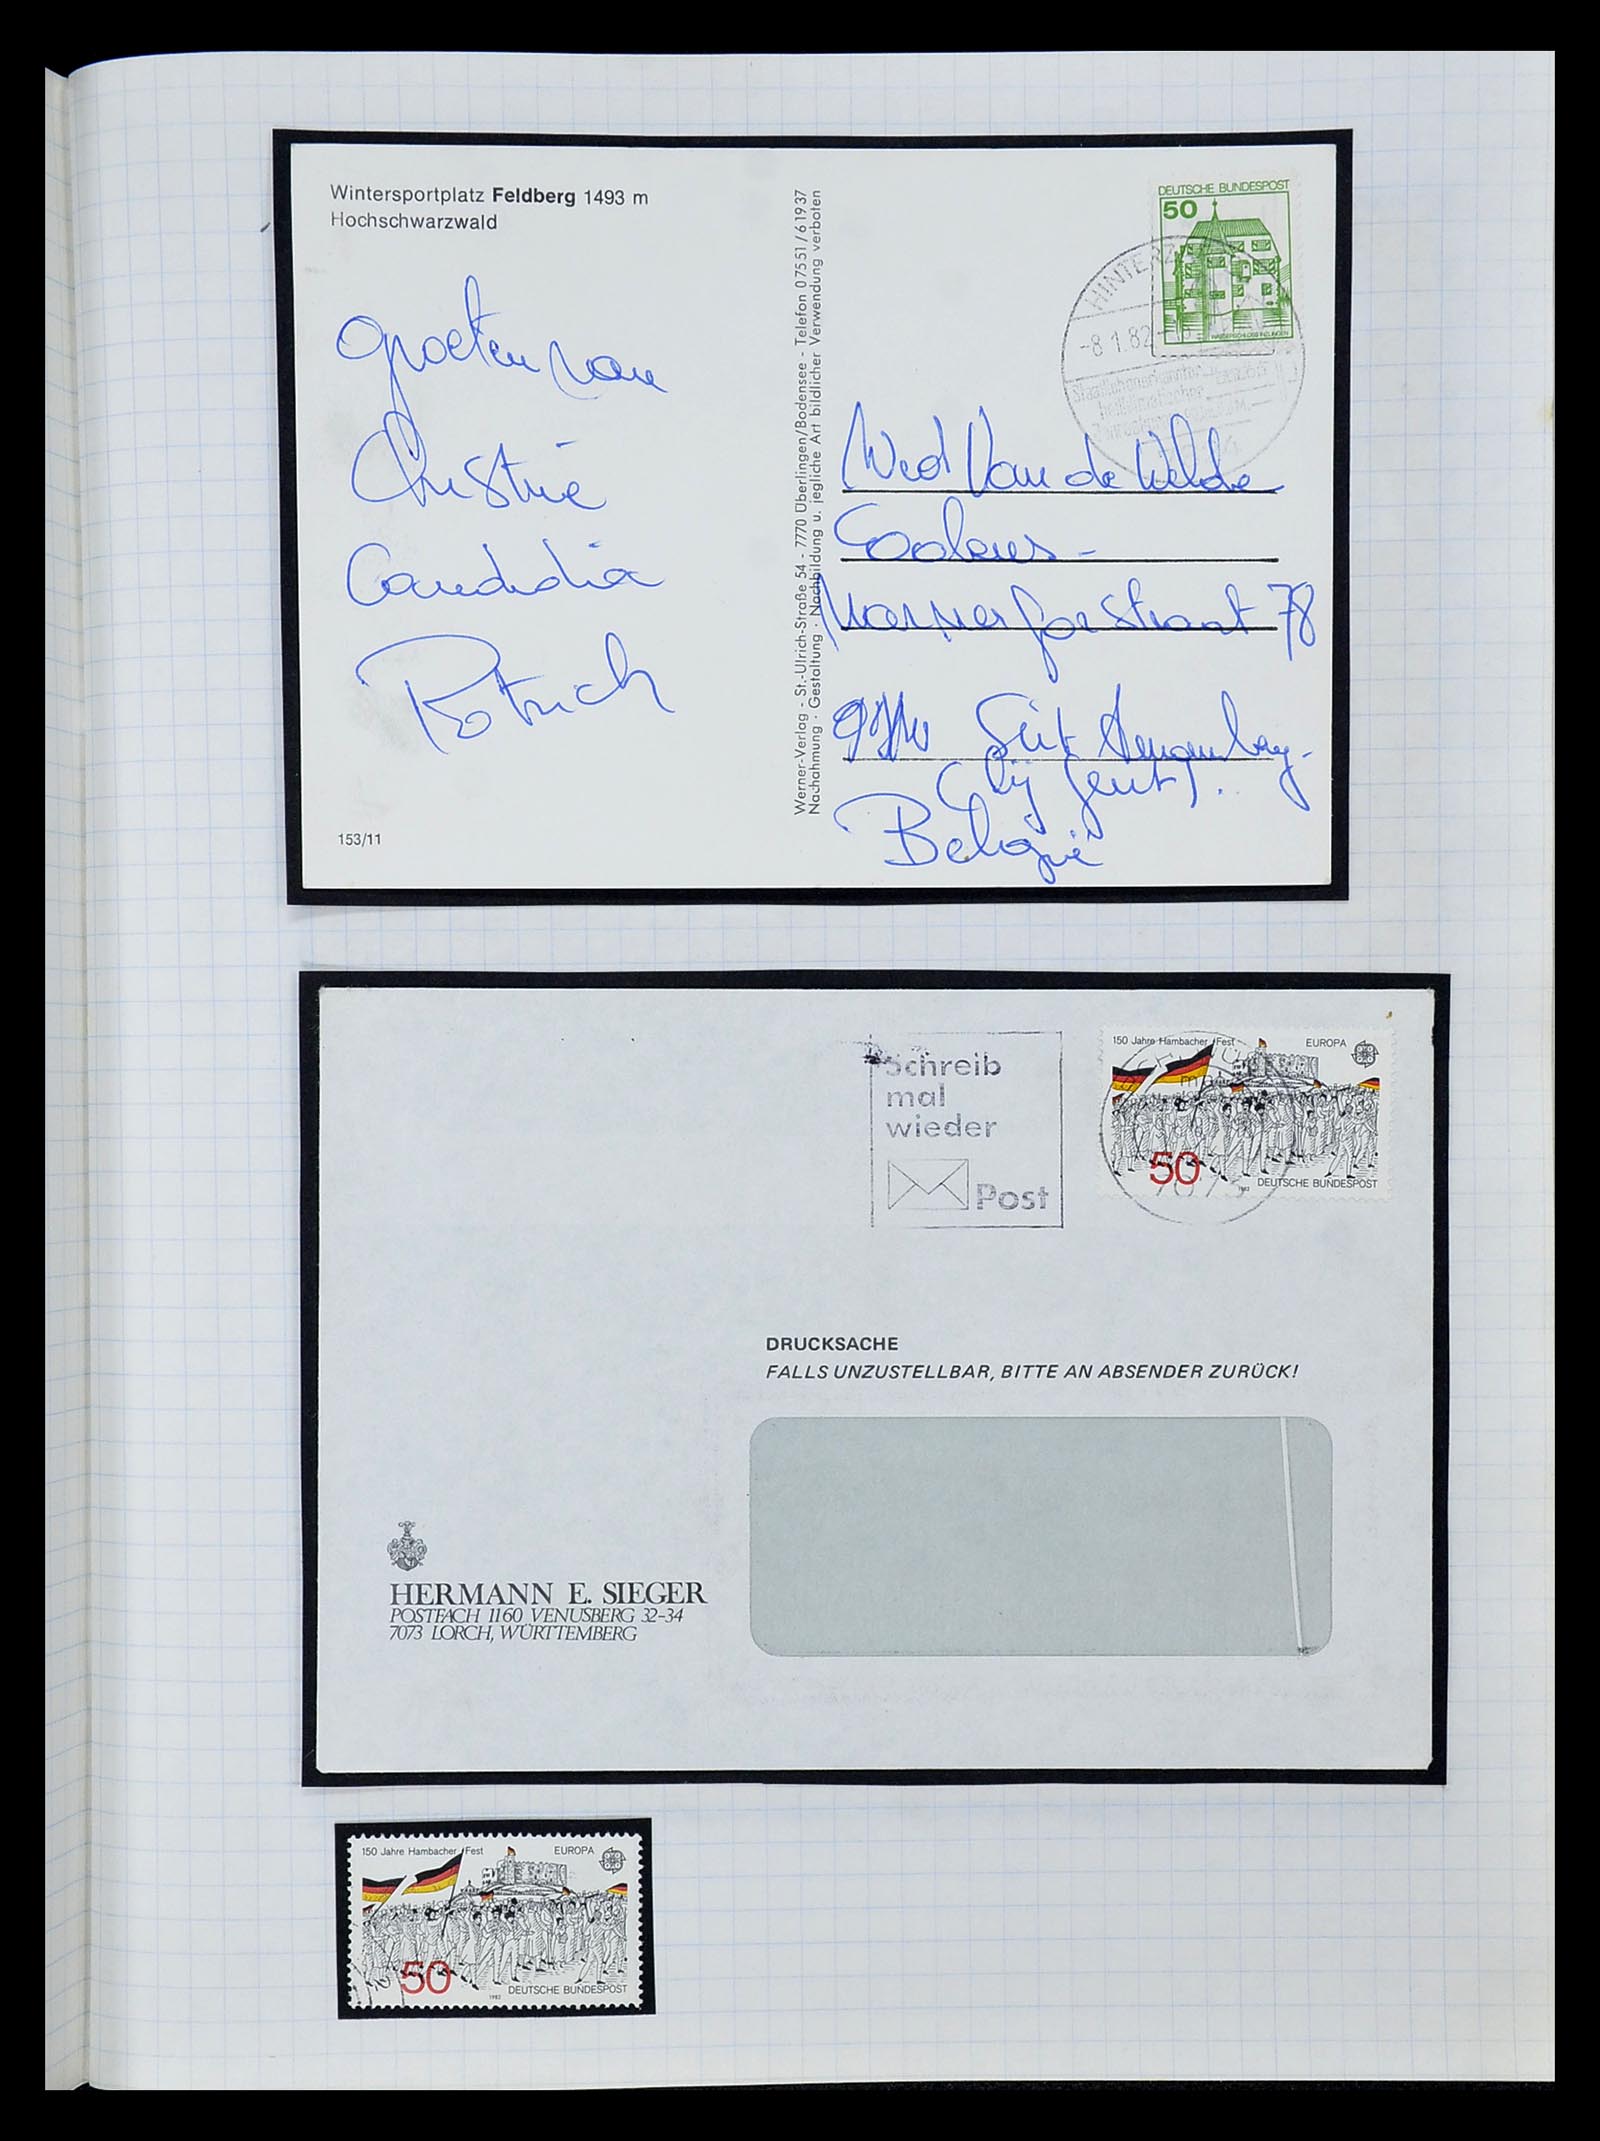 Wintersportplatz Feldberg 1493 m
Hochschwarzwald
groeten van
Christine
Claudia
Patrick
153/11
Werner-Verlag - St.-Ulrich-Straße 54 - 7770 Überlingen/Bodensee - Telefon 07551/61937
Nachahmung · Gestaltung · Nachbildung u. jegliche Art bildlicher Verwendung verboten
DEUTSCHE BUNDESPOST
50
WASSERSCHLOSS INZLINGEN
HINTERZ
-8.1.82
Staatlich anerkannter
heilklimatischer
Van de Velde
straat 78
Sint Amandsberg
(bij Gent)
België
Schreib
mal
wieder
Post
150 Jahre Hambacher Fest EUROPA
50
1982 DEUTSCHE BUNDESPOST
7073
DRUCKSACHE
FALLS UNZUSTELLBAR, BITTE AN ABSENDER ZURÜCK!
HERMANN E. SIEGER
POSTFACH 1160 VENUSBERG 32-34
7073 LORCH, WÜRTTEMBERG
150 Jahre Hambacher Fest EUROPA
50
1982 DEUTSCHE BUNDESPOST